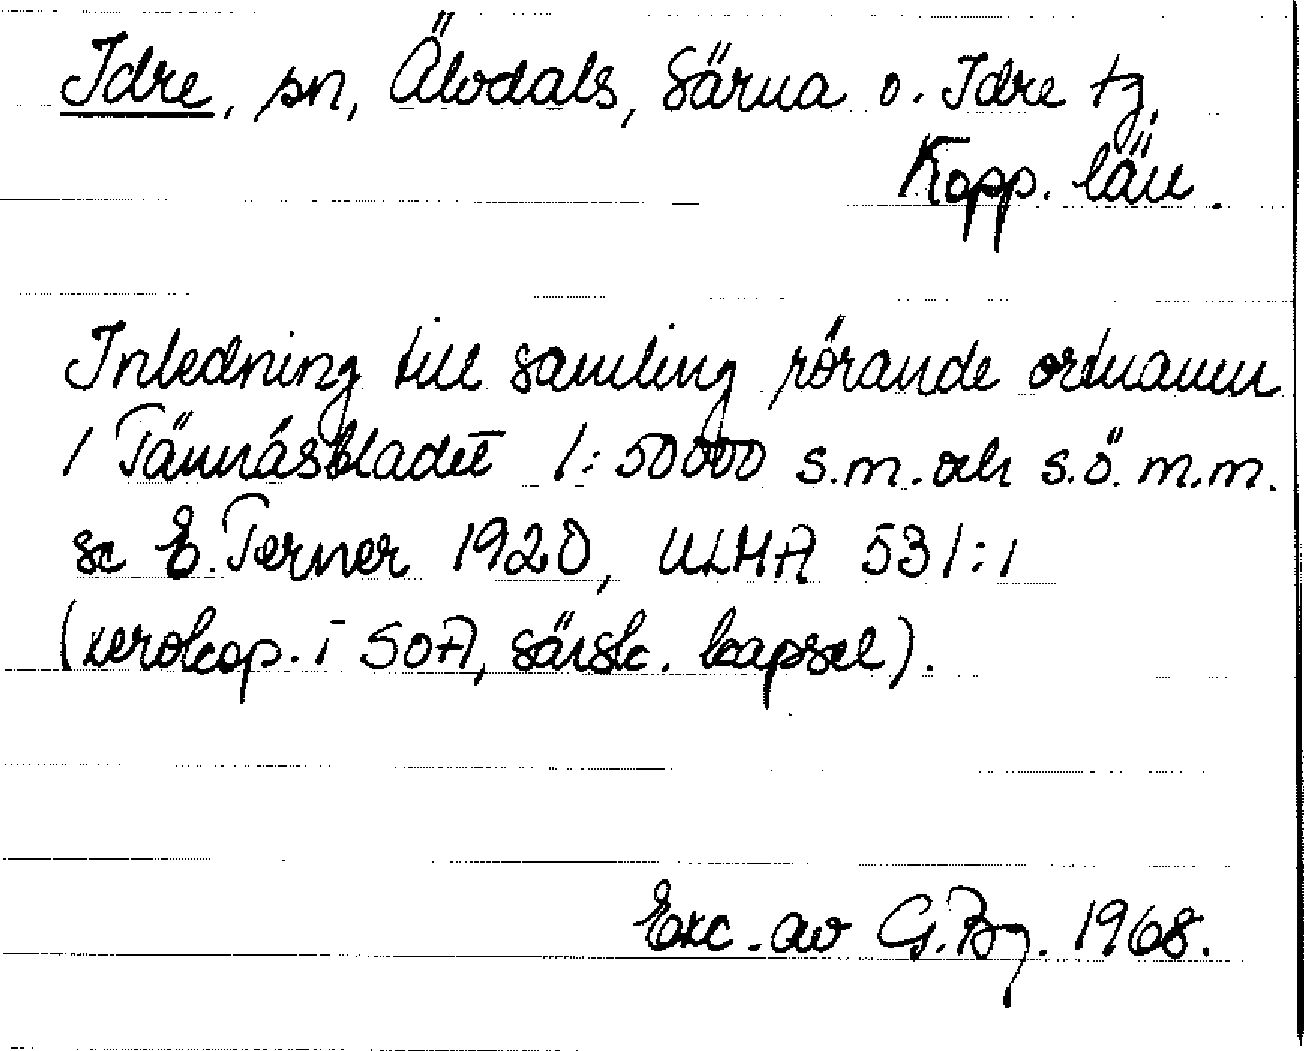 Idre, sn, Älvdals, Särna o. Idre tg,
Kopp. län.
Inledning till samling rörande ortnamn
i Tännäsbladet 1:50000 s.m. och s.ö. m.m.
se E. Terner 1920, ULMA 531:1
(xerokop. i SOA, särsk. kapsel).
Exc. av G. Bg. 1968.